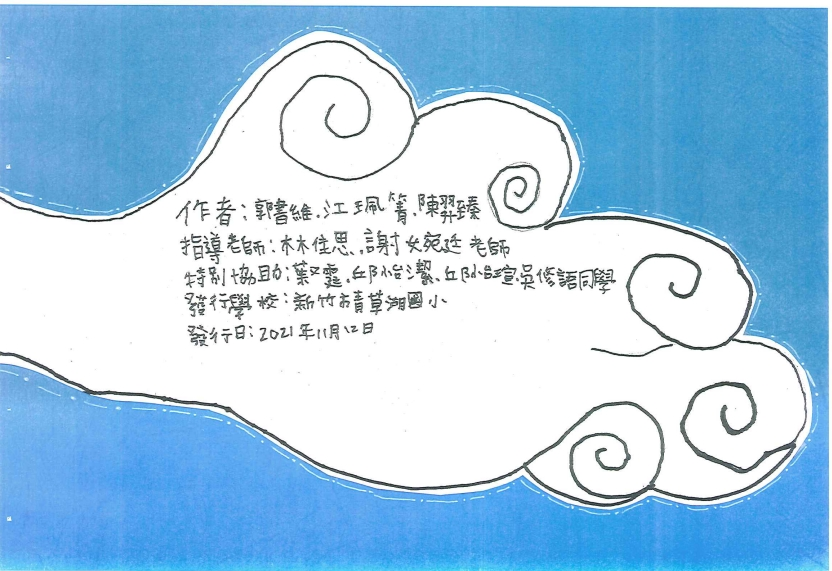 作者:郭書維、江珮箐、陳羿臻
指導老師:林佳思、謝婉廷 老師
特別協助:葉霆、邱怡潔、邱怡瑄、吳修語同學
發行學校:新竹市青草湖國小
發行日:2021年11月12日